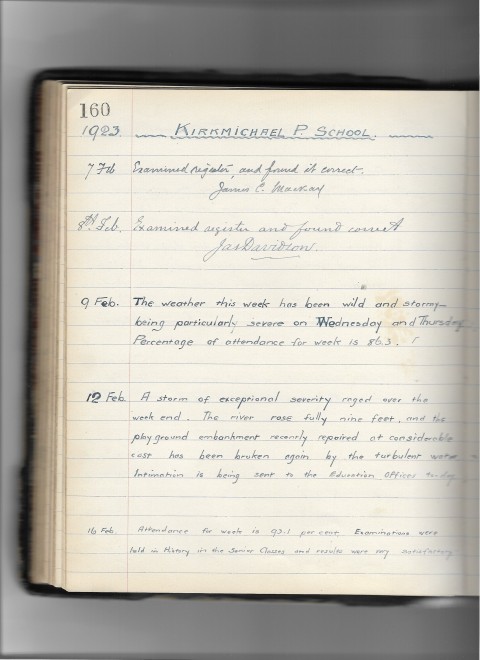 160
1923. KIRKMICHAEL P. SCHOOL.
7 Feb Examined register, and found it correct.
James C. Mackay
8th Feb. Examined register and found correct
Jas Davidson.
9 Feb. The weather this week has been wild and stormy
being particularly severe on Wednesday and Thursday
Percentage of attendance for week is 86.3.
12 Feb. A storm of exceptional severity raged over the
week end. The river rose fully nine feet, and the
playground embankment recently repaired at considerable
cost has been broken again by the turbulent water
Intimation is being sent to the Education Offices to-day
16 Feb. Attendance for week is 93.1 per cent. Examinations were
held in History in the Senior Classes and results were very satisfactory